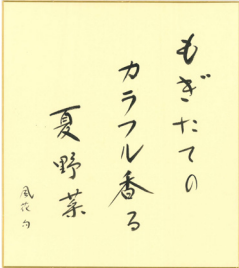 もぎたての
カラフル香る
夏野菜